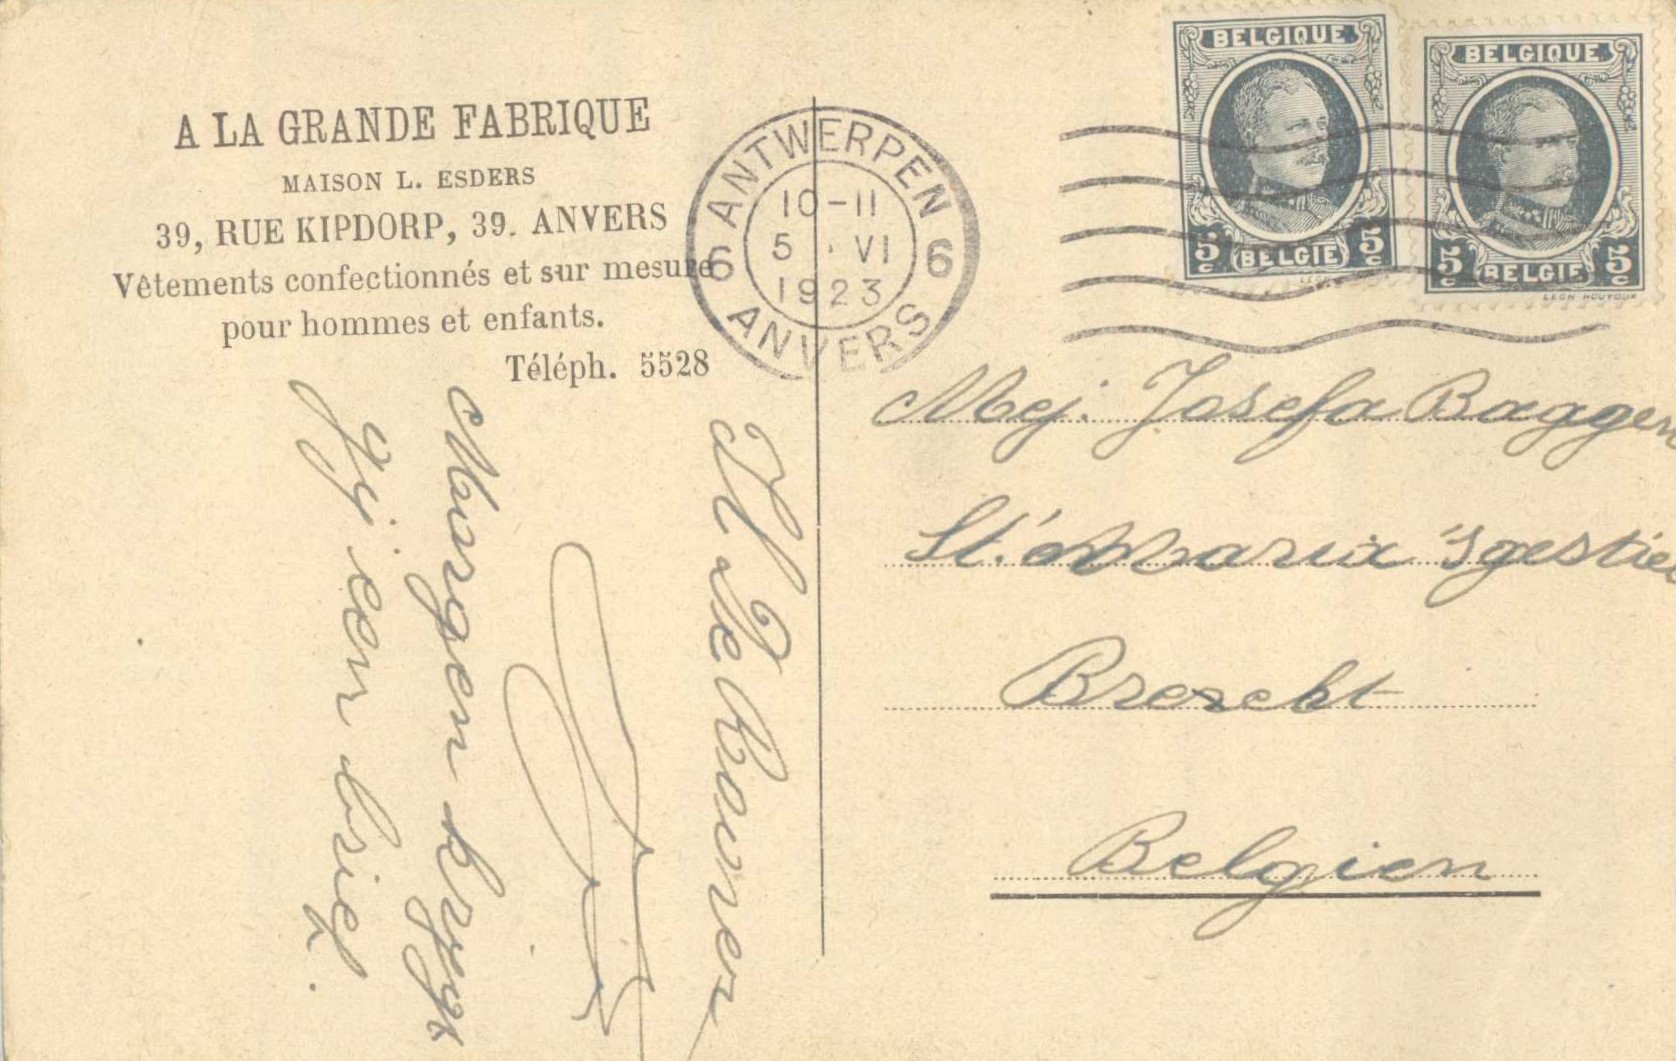 A LA GRANDE FABRIQUE
MAISON L. ESDERS
39, RUE KIPDORP, 39. ANVERS
Vêtements confectionnés et sur mesure
pour hommes et enfants.
Téléph. 5528
ANTWERPEN
6 6
10-11
5 · VI
1923
ANVERS
BELGIQUE
5c BELGIE 5c
BELGIQUE
5c BELGIE 5c
LEON HOUYOUX
Mej. Josefa Baggen
St. Maria
Brecht
Belgien
Morgen krygt
Gij een brief.